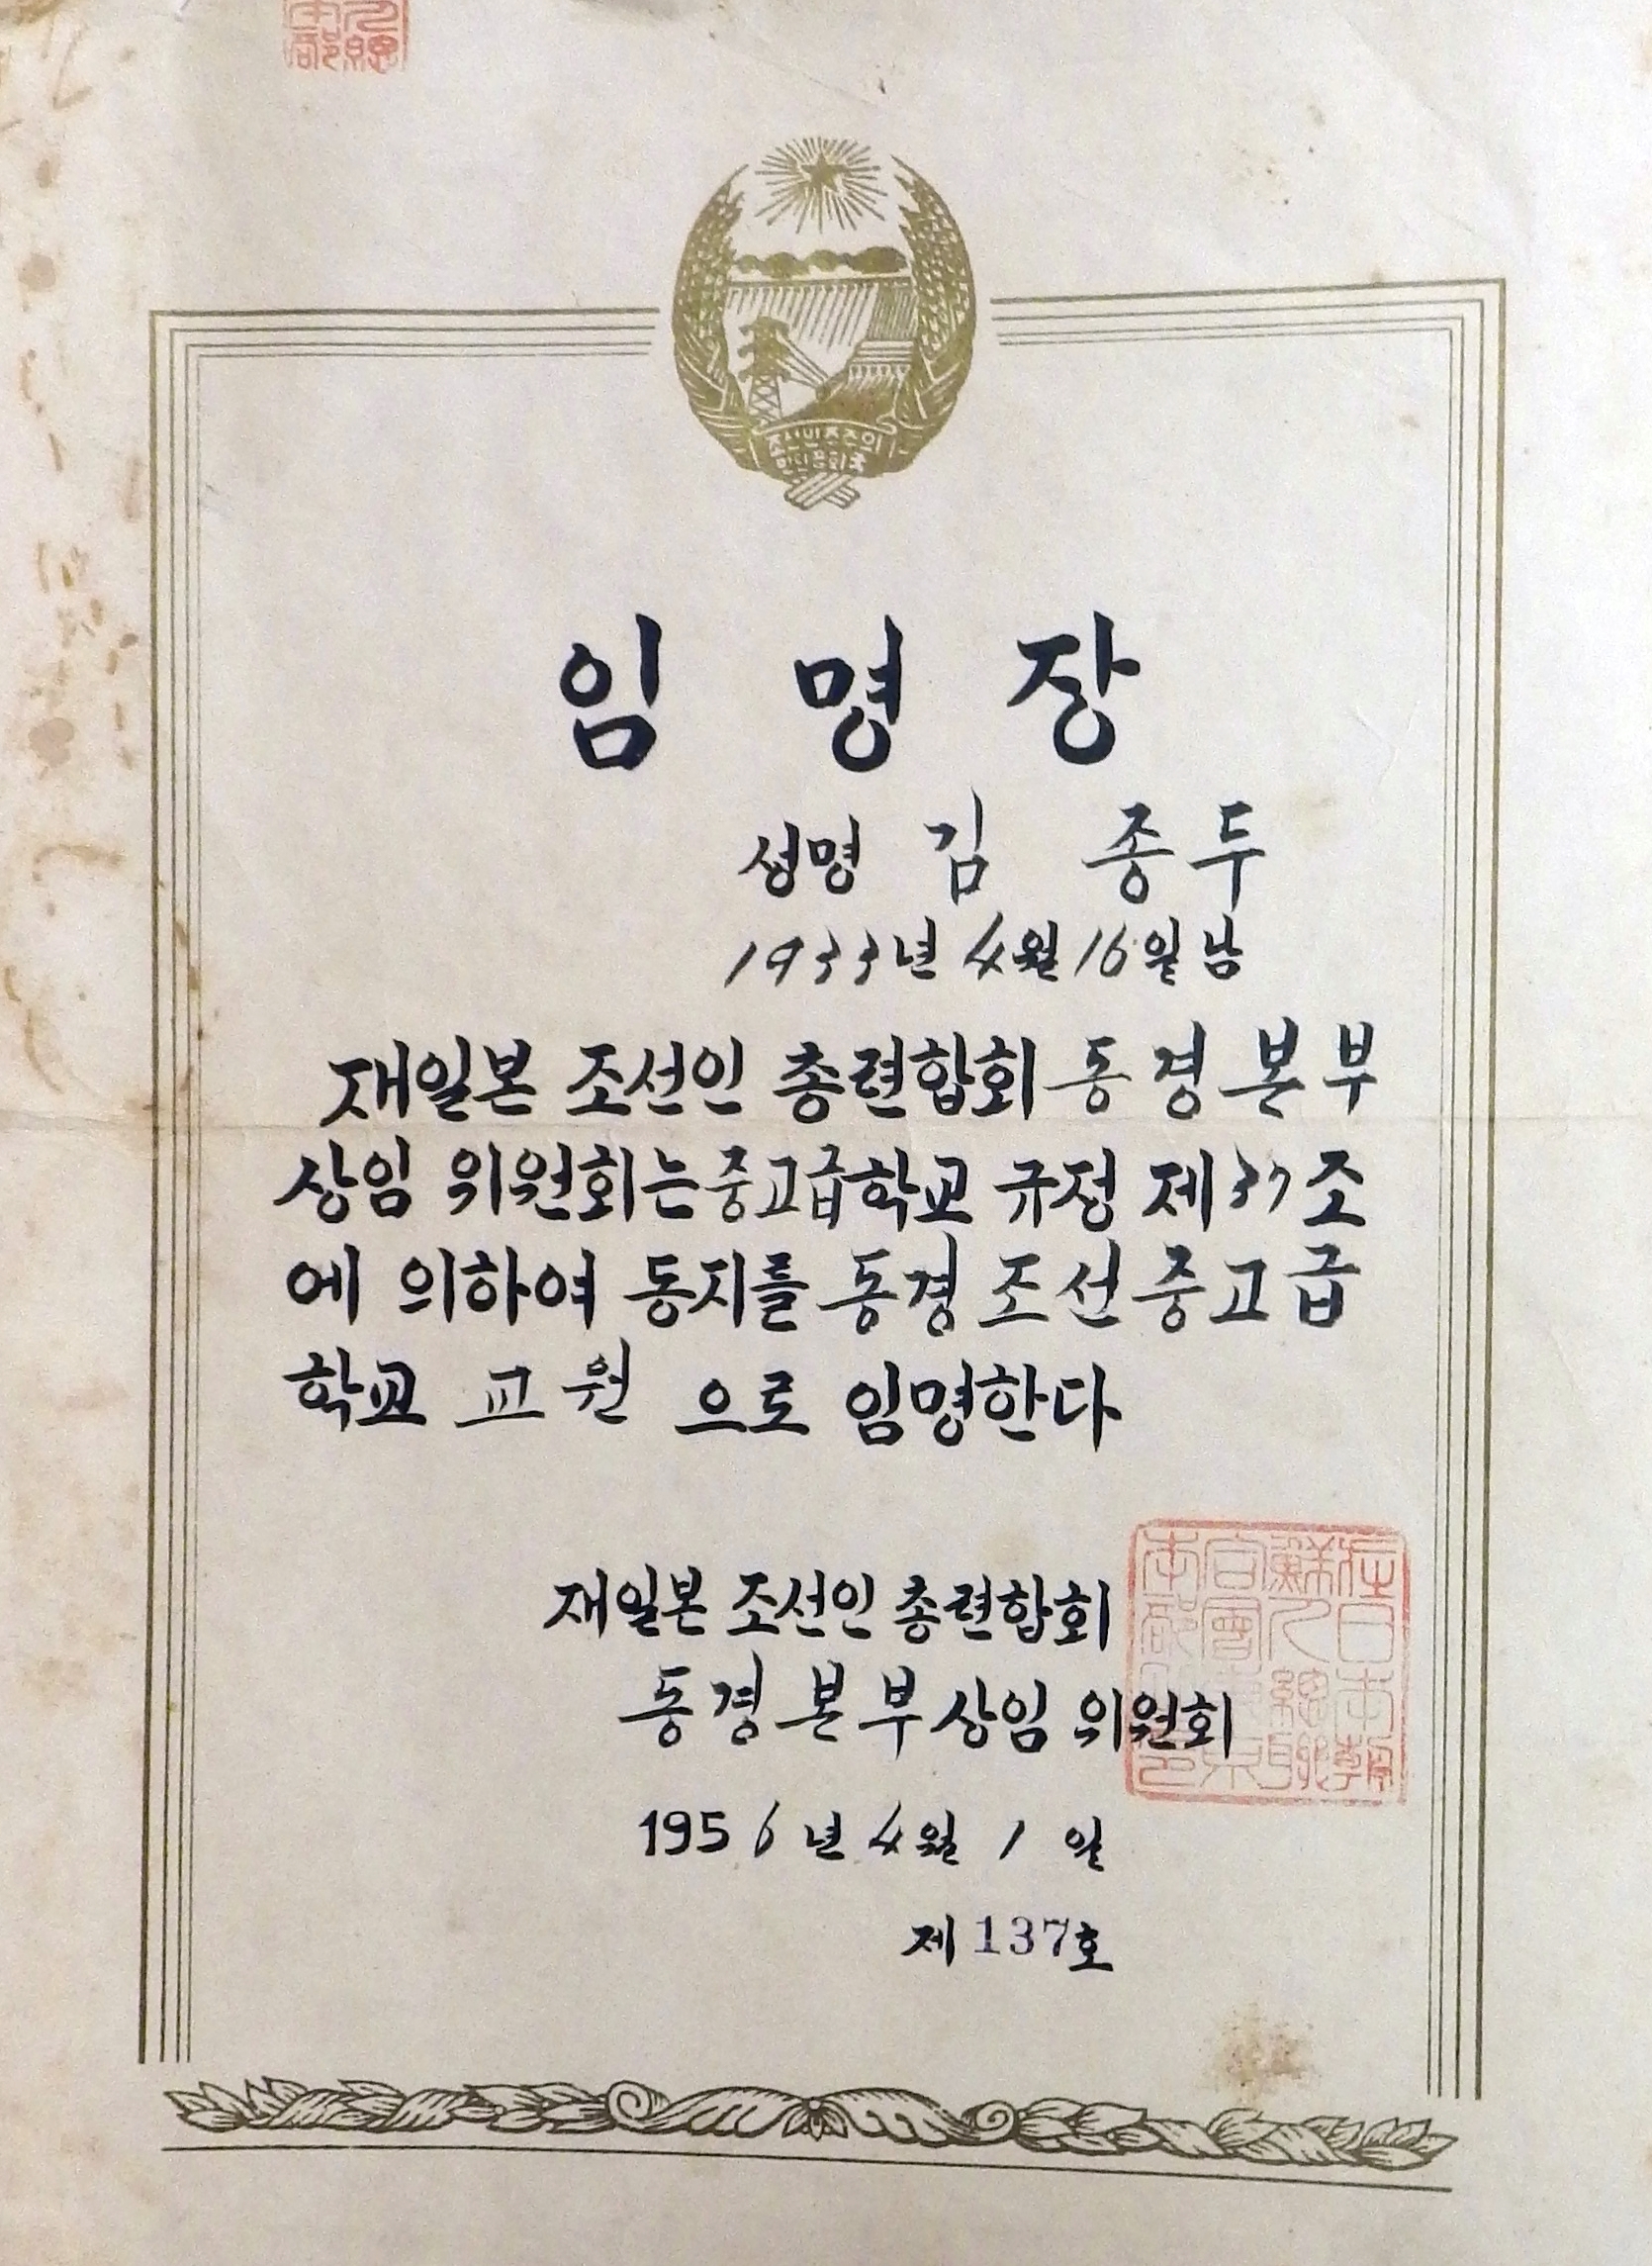 조선민주주의
인민공화국
임명장
성명 김 종두
1933년 4월 16일 남
재일본 조선인 총련합회 동경본부
상임 위원회는 중고급학교 규정 제37조
에 의하여 동지를 동경조선중고급
학교 교원 으로 임명한다
재일본 조선인 총련합회
동경본부 상임 위원회
1956년 4월 1 일
제 137호